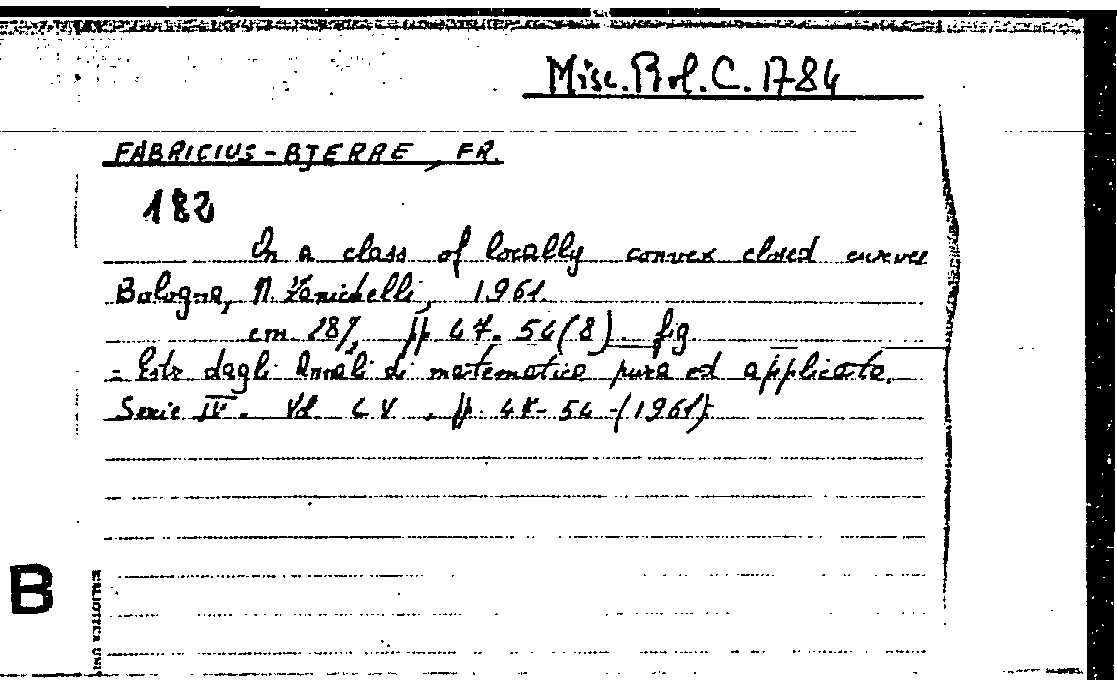 Misc. Bol. C. 1784
FABRICIUS-BJERRE, FR.
182
On a class of locally convex closed curves
Bologna, N. Zanichelli, 1961.
cm. 28½, pp. 47-54 (8). fig.
- Estr dagli Annali di matematica pura ed applicata.
Serie IV. Vol. LV. pp. 47-54 - (1961)
B
BIBLIOTECA UNIV